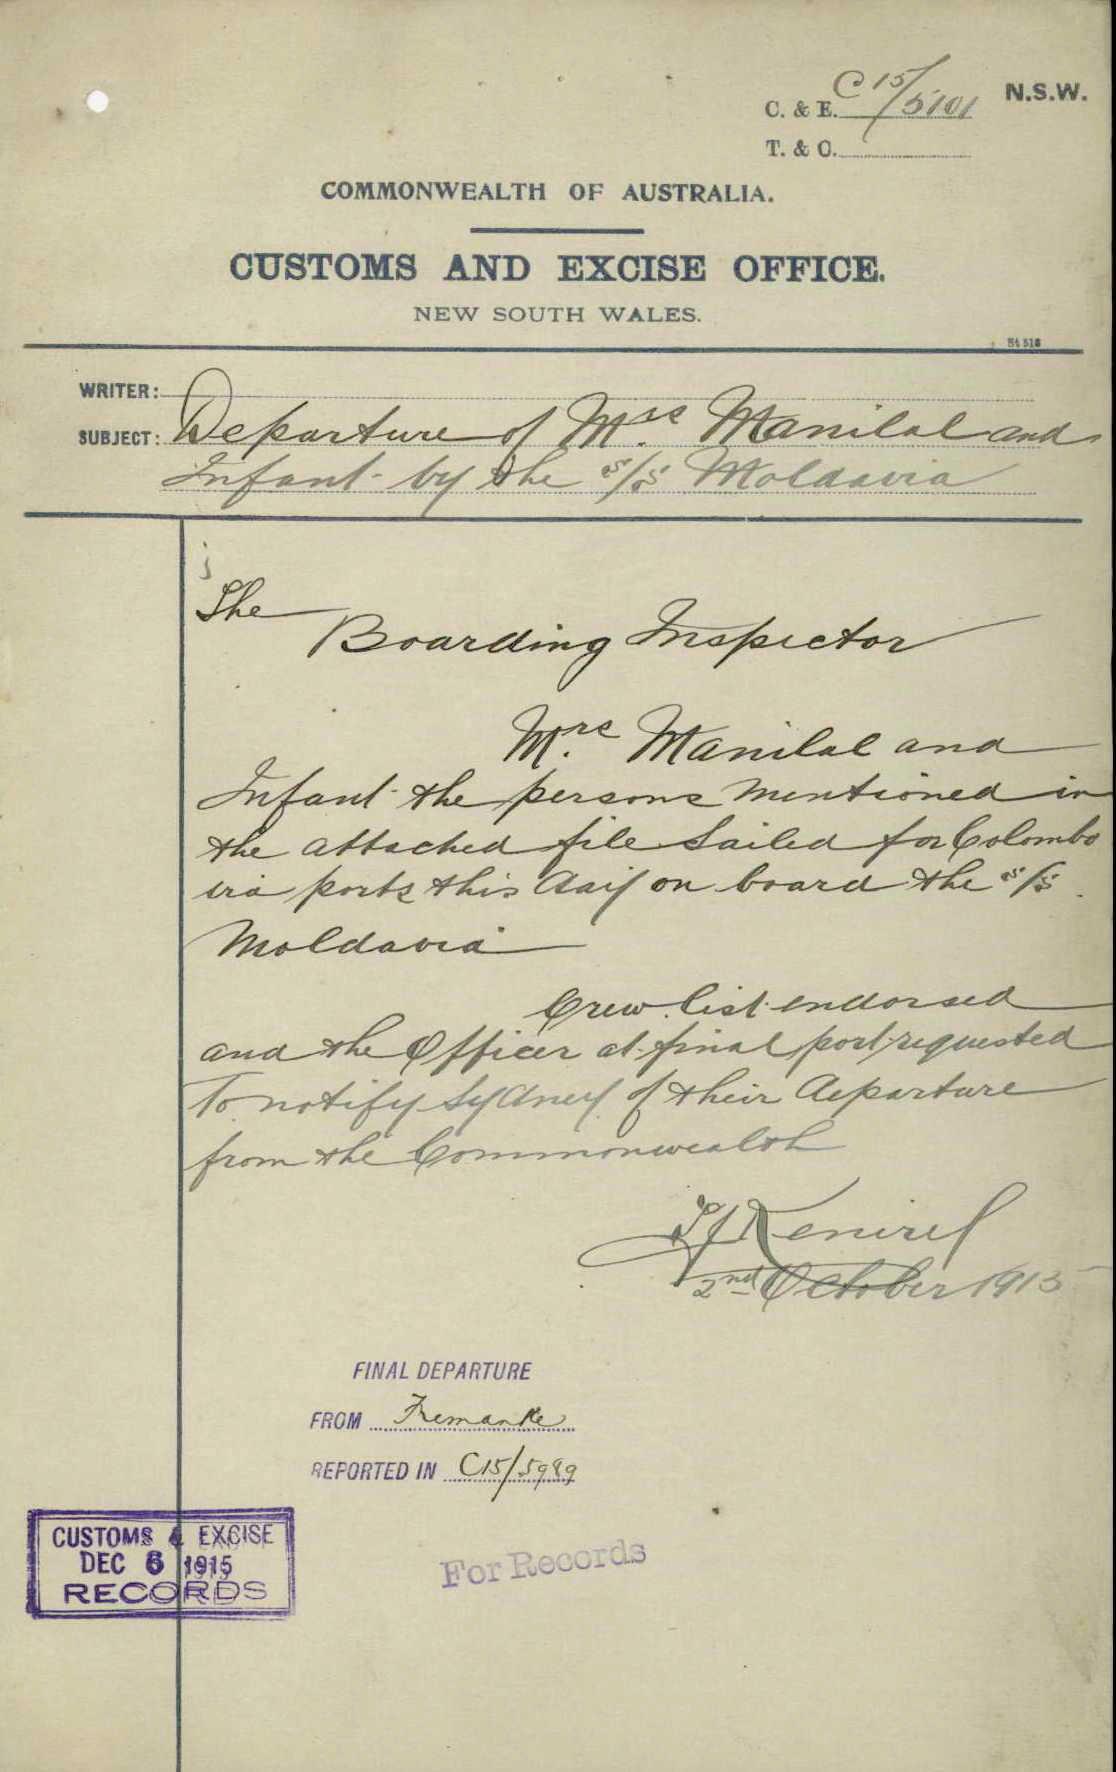 C. & E. C 15/5101 N.S.W.
T. & C.
COMMONWEALTH OF AUSTRALIA.
CUSTOMS AND EXCISE OFFICE.
NEW SOUTH WALES.
WRITER:
SUBJECT: Departure of Mrs. Manilal and
Infant by the s/s Moldavia
The
Boarding Inspector
Mrs. Manilal and
Infant the persons mentioned in
the attached file sailed for Colombo
via ports this day on board the s/s
Moldavia
Crew list endorsed
and the Officer at final port requested
To notify Sydney of their departure
from the Commonwealth
2nd October 1915
FINAL DEPARTURE
FROM Fremantle
REPORTED IN C15/5989
CUSTOMS & EXCISE
DEC 6 1915
RECORDS
For Records